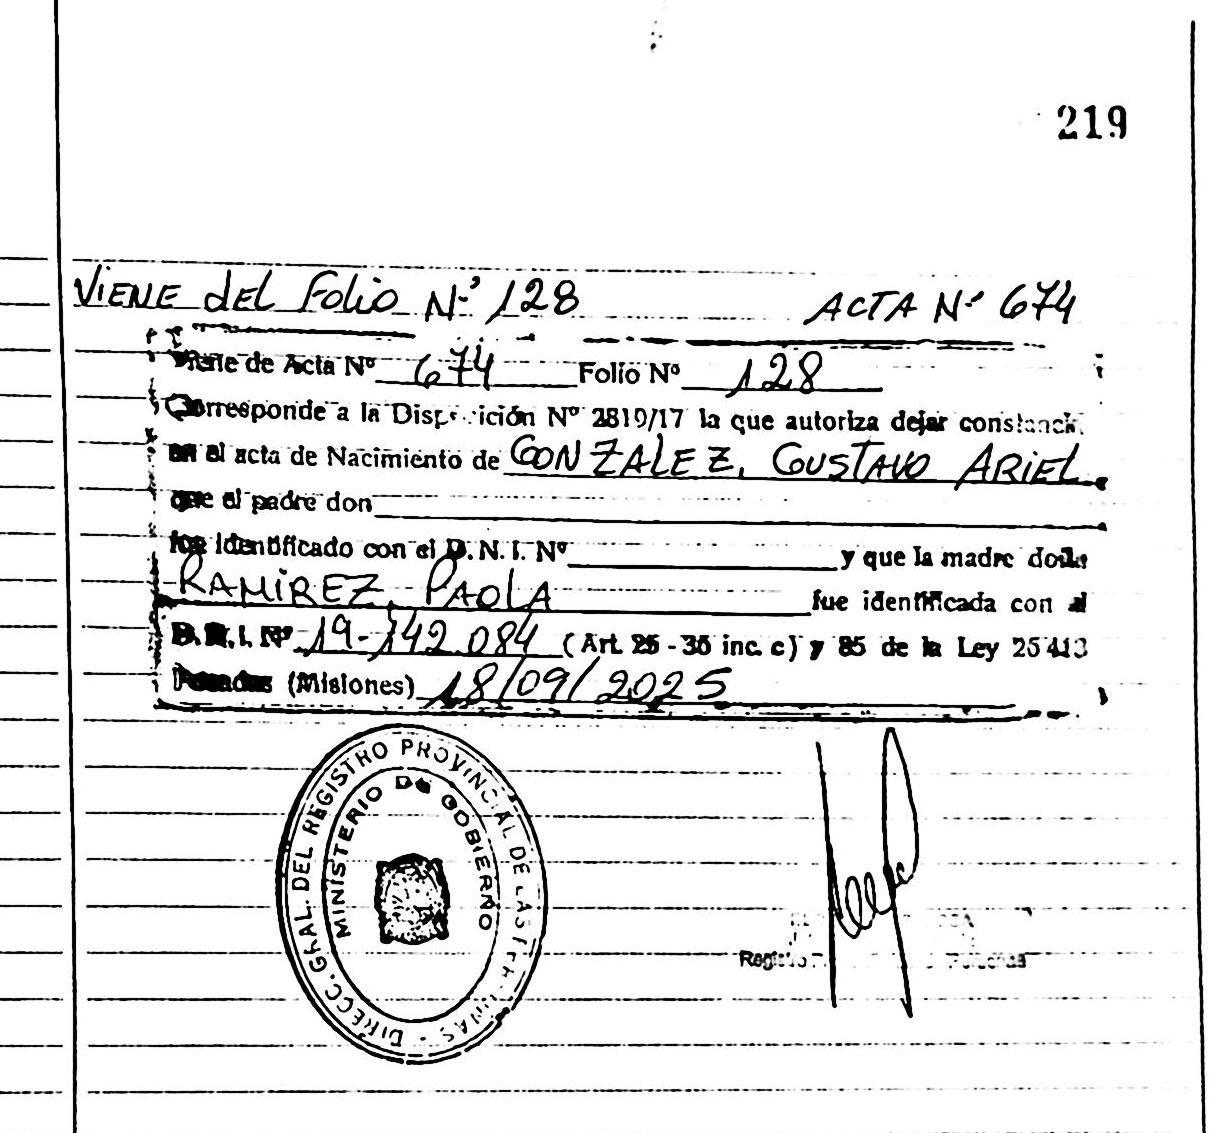 219
VIENE dEL Folio Nº 128 ACTA Nº 674
Viene de Acta Nº 674 Folio Nº 128
Corresponde a la Disposición Nº 2819/17 la que autoriza dejar constancia
en el acta de Nacimiento de GONZALEZ, GUSTAVO ARIEL
que el padre don
fue identificado con el D. N. I. Nº y que la madre doña
RAMIREZ, PAOLA fue identificada con el
D. N. I. Nº 19-142.084 (Art. 25 - 36 inc. c) y 85 de la Ley 26413
Posadas (Misiones) 18/09/2025
DIRECC. GRAL. DEL REGISTRO PROVINCIAL DE LAS PERSONAS -
MINISTERIO DE GOBIERNO
Registro Personas